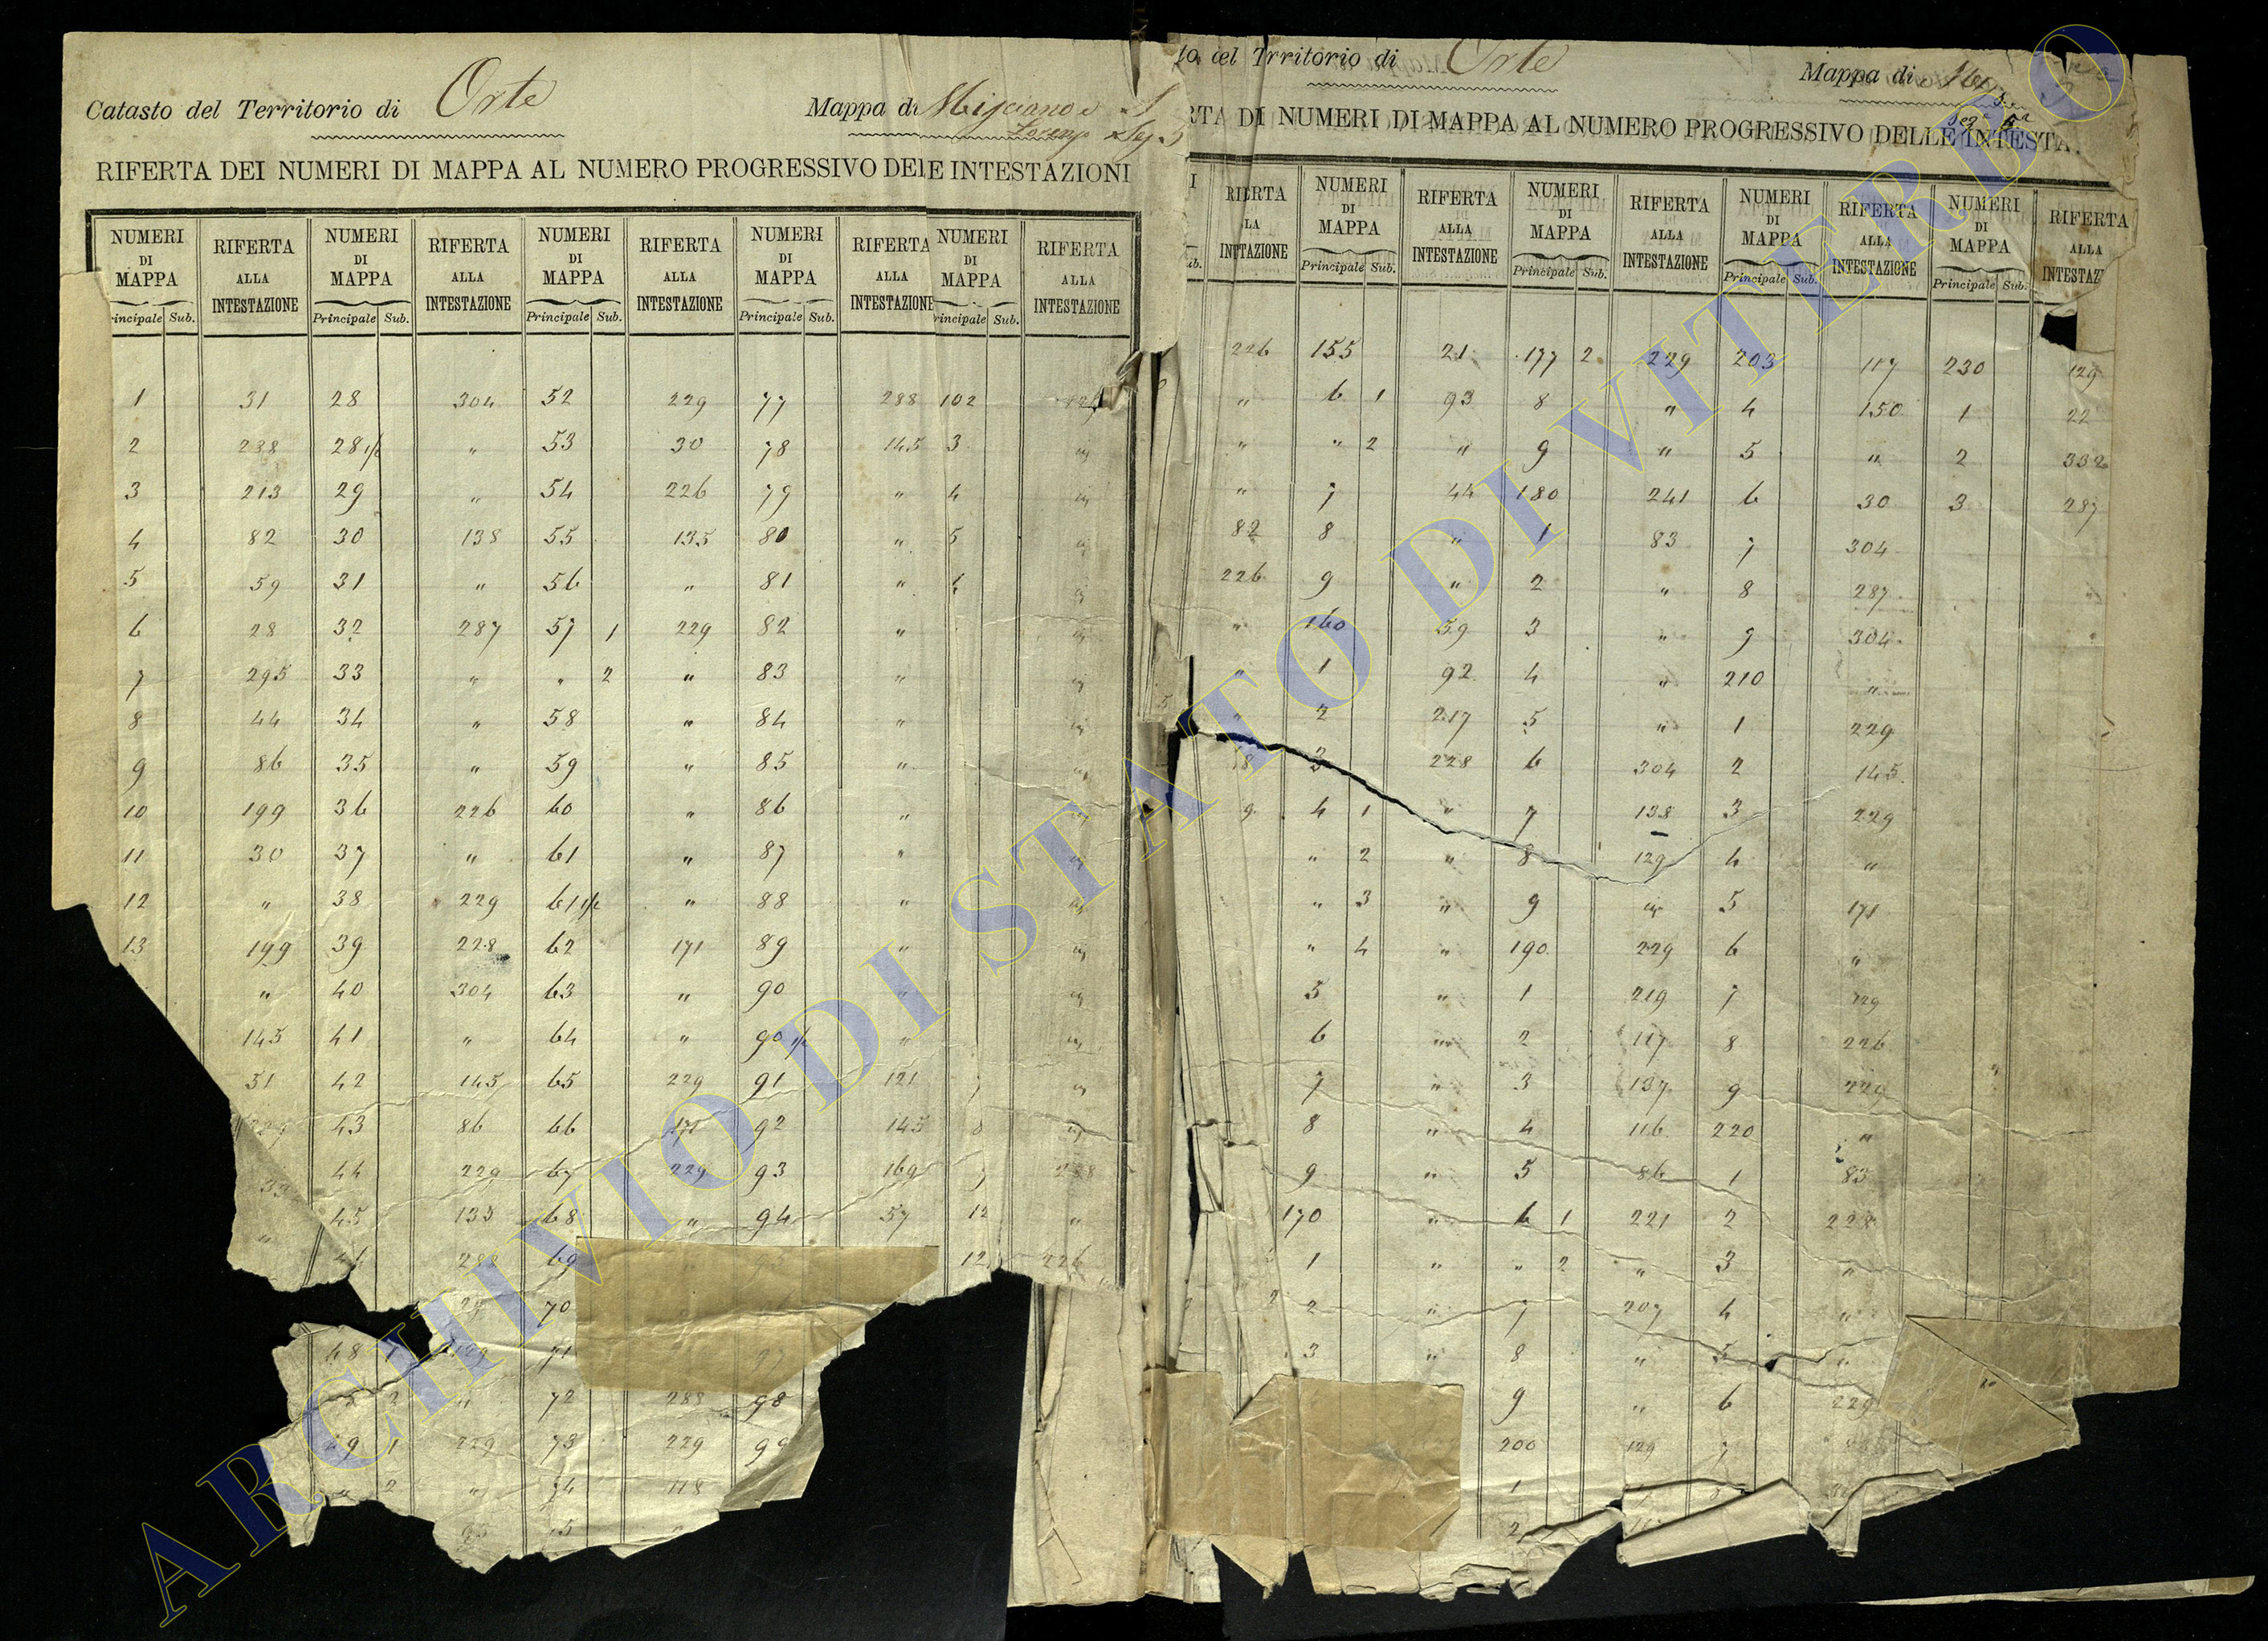 Catasto del Territorio di Orte
Mappa di Migliano e S
Lorenzo Seg. 5
RIFERTA DEI NUMERI DI MAPPA AL NUMERO PROGRESSIVO DELLE INTESTAZIONI
NUMERI DI MAPPA RIFERTA ALLA INTESTAZIONE NUMERI DI MAPPA RIFERTA ALLA INTESTAZIONE NUMERI DI MAPPA RIFERTA ALLA INTESTAZIONE NUMERI DI MAPPA RIFERTA ALLA INTESTAZIONE NUMERI DI MAPPA RIFERTA ALLA INTESTAZIONE
rincipale Sub. Principale Sub. Principale Sub. Principale Sub. rincipale Sub.
1 31 28 304 52 229 77 288 102
2 238 28 1/2 " 53 30 78 145 3 "
3 213 29 " 54 226 79 " 4 "
4 82 30 138 55 135 80 " 5 "
5 59 31 " 56 " 81 " "
6 28 32 287 57 1 229 82 " "
7 295 33 " " 2 " 83 " "
8 44 34 " 58 " 84 " "
9 86 35 " 59 " 85 " "
10 199 36 226 60 " 86 " "
11 30 37 " 61 " 87 " "
12 " 38 229 61 1/2 " 88 " "
13 199 39 228 62 171 89 " "
" 40 304 63 " 90 " "
145 41 " 64 " 90 1/2 " "
51 42 145 65 229 91 121 "
43 86 66 171 92 145 8 "
44 229 67 229 93 169 288
" 45 135 68 " 94 57 12 "
69 12 226
70
48 1 129 71 97
2 " 72 288 98
9 1 229 73 229 99
" 2 " 74 118
5
to del Trritorio di Orte
Mappa di
Seg. 5a
RTA DI NUMERI DI MAPPA AL NUMERO PROGRESSIVO DELLE INTESTA
RIFERTA LA INTTAZIONE NUMERI DI MAPPA RIFERTA ALLA INTESTAZIONE NUMERI DI MAPPA RIFERTA ALLA INTESTAZIONE NUMERI DI MAPPA RIFERTA ALLA INTESTAZIONE NUMERI DI MAPPA RIFERTA ALLA INTESTAZ
ub. Principale Sub. Principale Sub. Principale Sub. Principale Sub.
226 155 21 177 2 229 203 117 230 129
" 6 1 93 8 " 4 150 1 22
" " 2 " 9 " 5 " 2 332
" 7 44 180 241 6 30 3 287
82 8 " 1 83 7 304
226 9 " 2 " 8 287
" 160 59 3 " 9 304
" 1 92 4 " 210 "
" 2 217 5 " 1 229
8 3 228 6 304 2 145
9 4 1 " 7 138 3 229
" 2 " 8 129 4 "
" 3 " 9 " 5 171
" 4 " 190 229 6 "
5 " 1 219 7 229
6 " 2 117 8 226
7 " 3 137 9 229
8 " 4 116 220 "
9 " 5 86 1 83
170 " 6 1 221 2 228
1 " " 2 " 3 "
2 " 7 207 4 "
3 " 8 " 5 "
9 " 6 229
200 129 7
1 8
2
ARCHIVIO DI STATO DI VITERBO